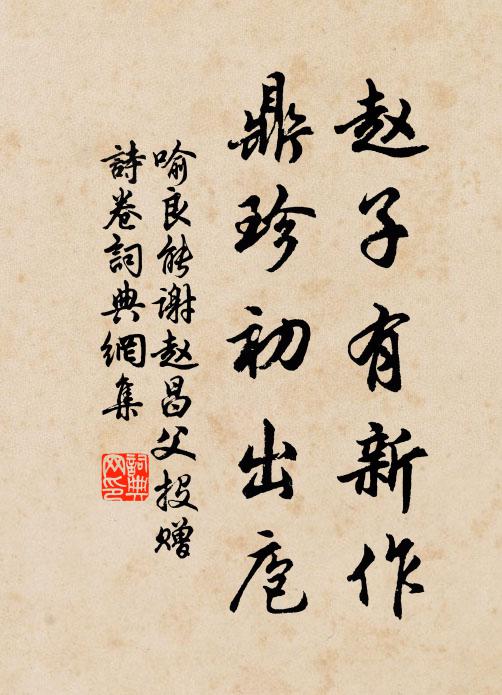 赵子有新作
鼎珍初出庖
喻良能谢赵昌父投赠
詩卷詞典網集
詞典网印